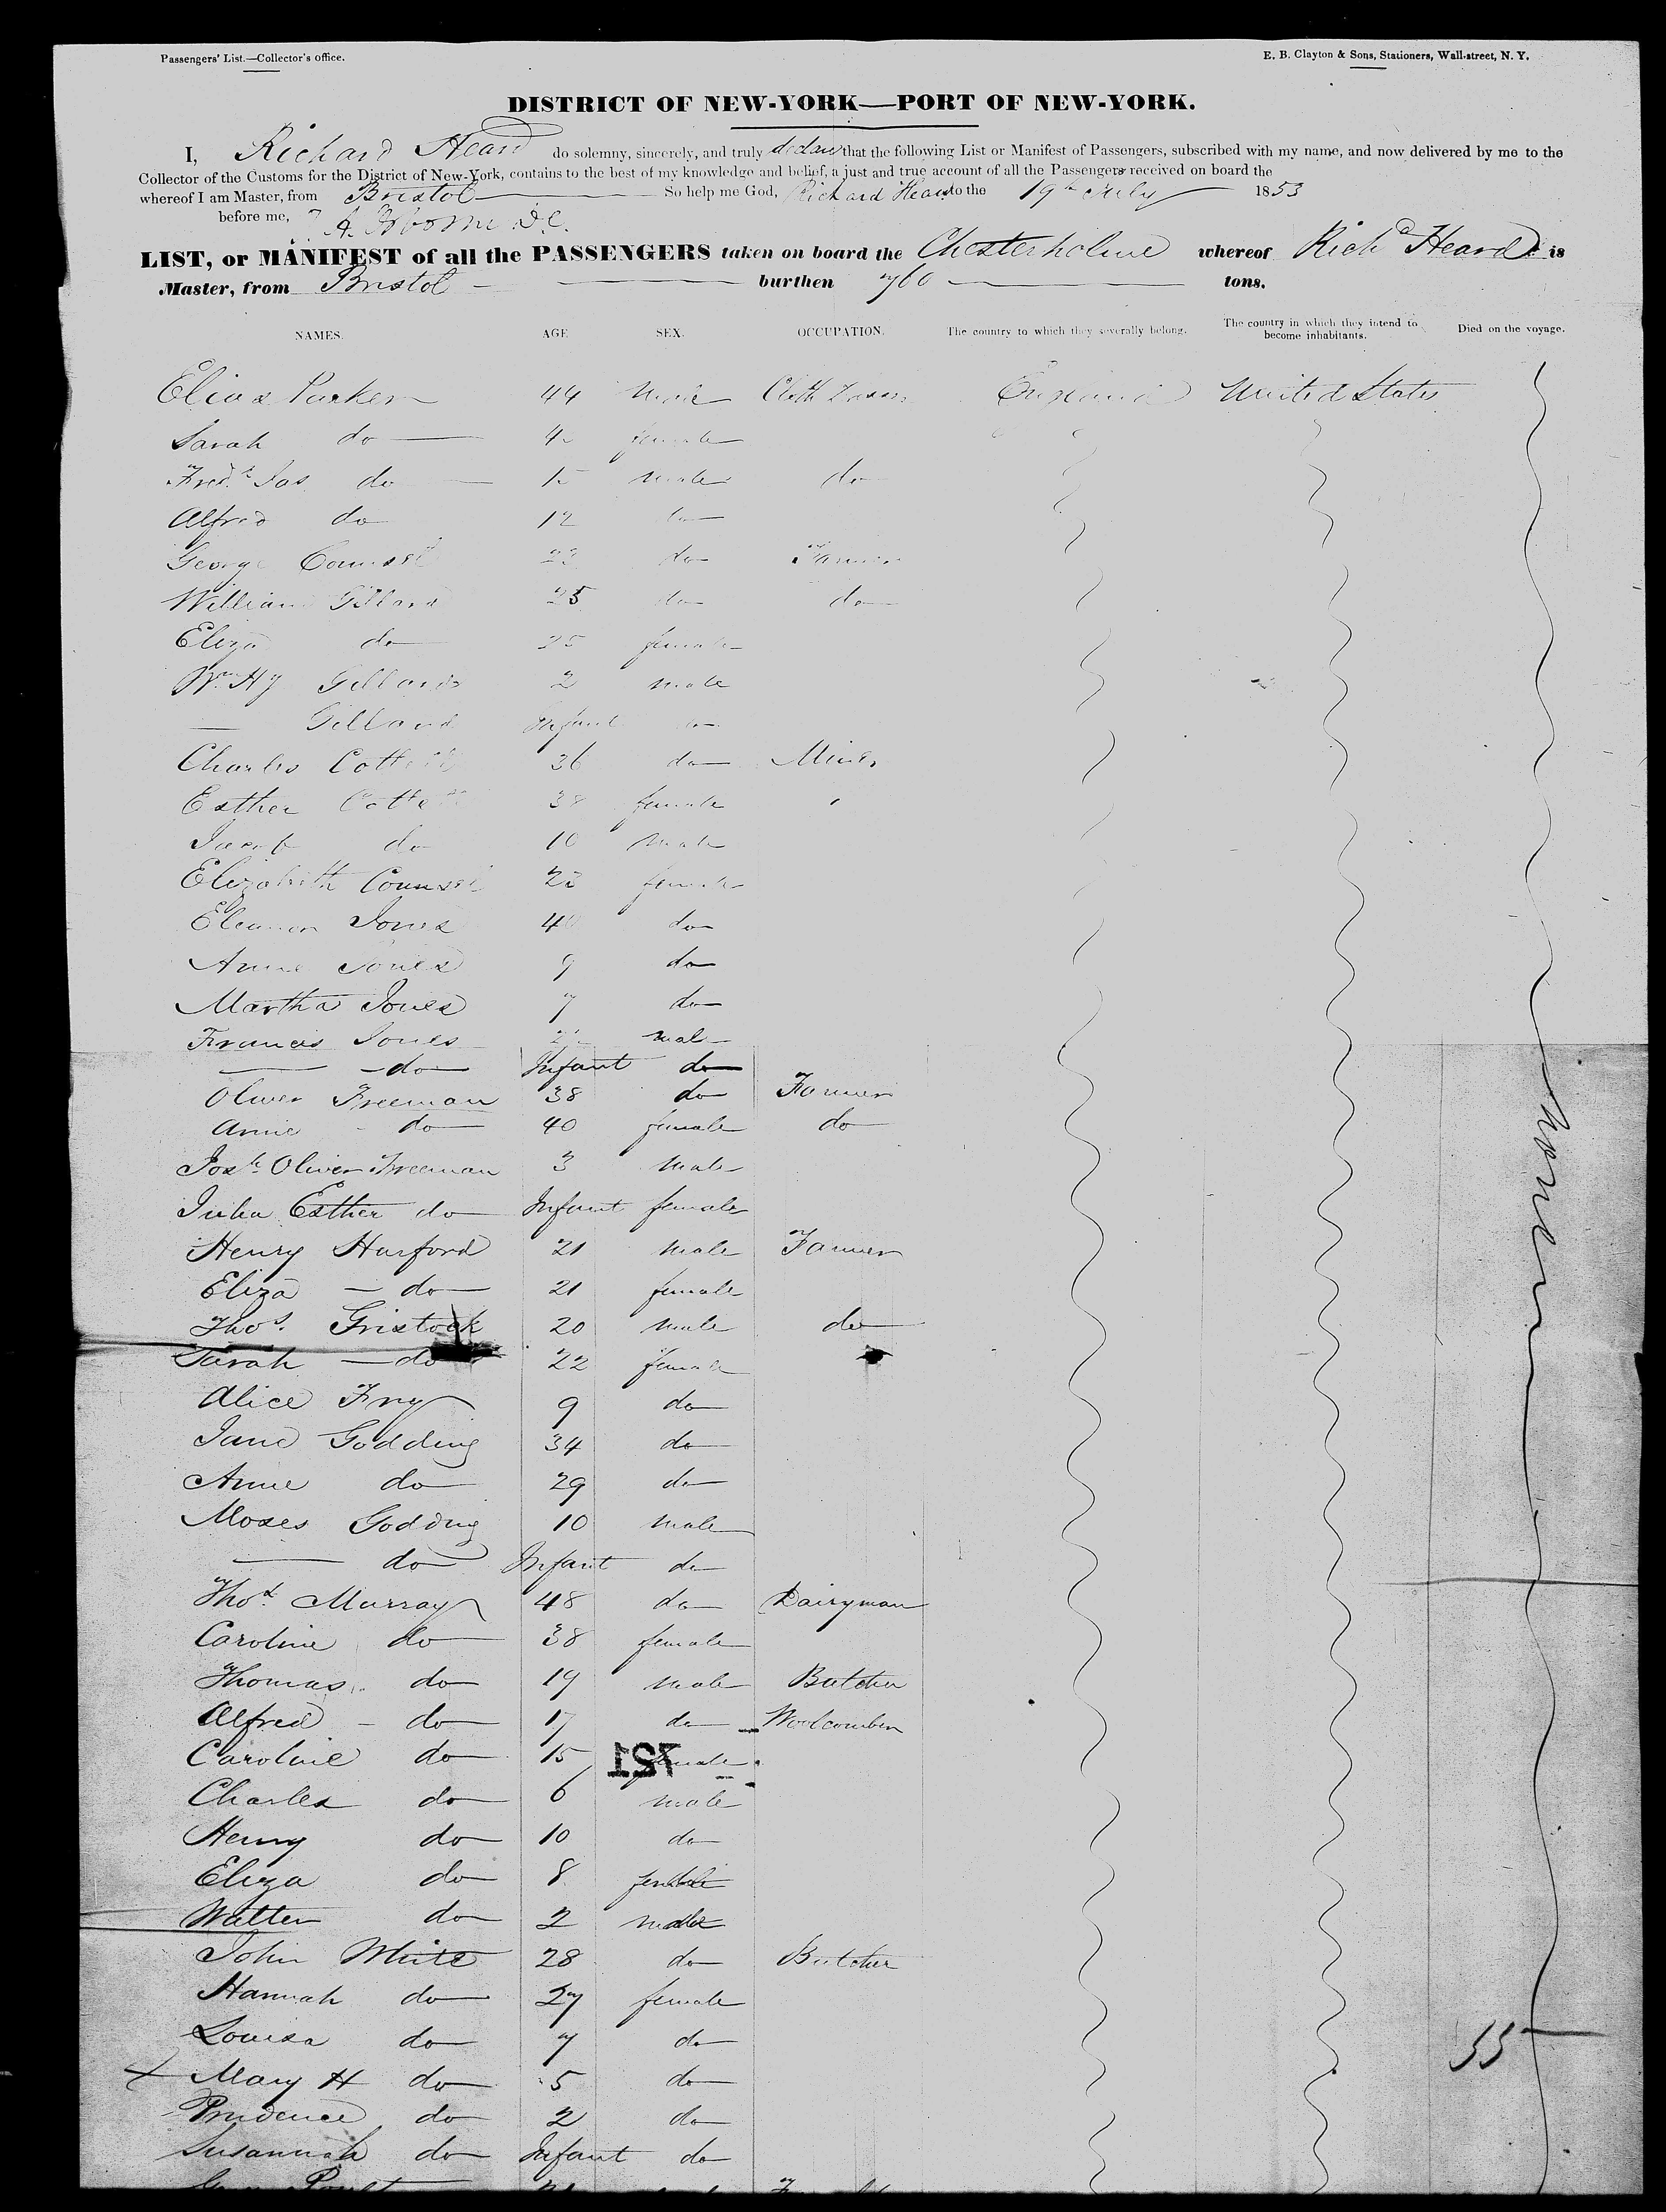 Passengers' List.—Collector's office.
E. B. Clayton & Sons, Stationers, Wall-street, N. Y.
DISTRICT OF NEW-YORK—PORT OF NEW-YORK.
I, Richard Heard do solemny, sincerely, and truly declare that the following List or Manifest of Passengers, subscribed with my name, and now delivered by me to the
Collector of the Customs for the District of New-York, contains to the best of my knowledge and belief, a just and true account of all the Passengers received on board the
whereof I am Master, from Bristol So help me God, Richard Heard to the 19th July 1853
before me,
LIST, or MANIFEST of all the PASSENGERS taken on board the Chesterholme whereof Richd Heard is
Master, from Bristol burthen 760 tons.
NAMES. AGE SEX. OCCUPATION. The country to which they severally belong. The country in which they intend to become inhabitants. Died on the voyage.
Elias Parker 44 Male Cloth England United States
Sarah do female
Fredk Jas do male do
Alfred do 12 do
George Counsel 23 do Farmer
William Gillard 25 do do
Eliza do 25 female
Wm Hy Gillard 2 male
— Gillard Infant do
Charles 36 do Miner
Esther 38 female
Jacob do 10 male
Elizabeth Counsel 23 female
Eleanor Jones 40 do
Anne Jones 9 do
Martha Jones 7 do
Francis Jones male
— do Infant do
Oliver Freeman 38 do Farmer
Anne do 40 female do
Josh Oliver Freeman 3 Male
Julia Esther do Infant female
Henry Harford 21 Male Farmer
Eliza — do 21 female
Thos. Gristock 20 Male do
Sarah — do 22 female
Alice Fry 9 do
Jane Godding 34 do
Anne do 29 do
Moses Godding 10 Male
— do Infant do
Thos. Murray 48 do Dairyman
Caroline do 38 female
Thomas do 19 male Butcher
Alfred - do 17 do Woolcomber
Caroline do 15 female
751
Charles do 6 male
Henry do 10 do
Eliza do 8 female
Walter do 2 male
John White 28 do Butcher
Hannah do 27 female
Louisa do 7 do
55
x Mary H do 5 do
Prudence do 2 do
Susannah do Infant do
None